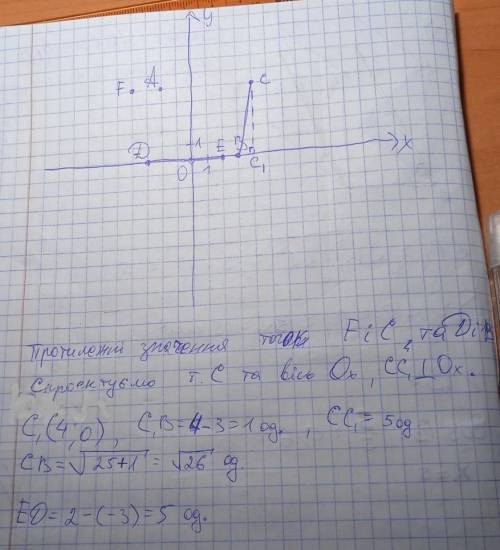 y
F A C
1
D E B x
O 1 C₁
Протилежні значення точок F i C, та D i B
Спроектуємо т. C та вісь Ox, CC₁⊥Ox.
C₁(4;0), C₁B=4-3=1 од., CC₁=5 од
CB=√25+1=√26 од.
ED=2-(-3)=5 од.